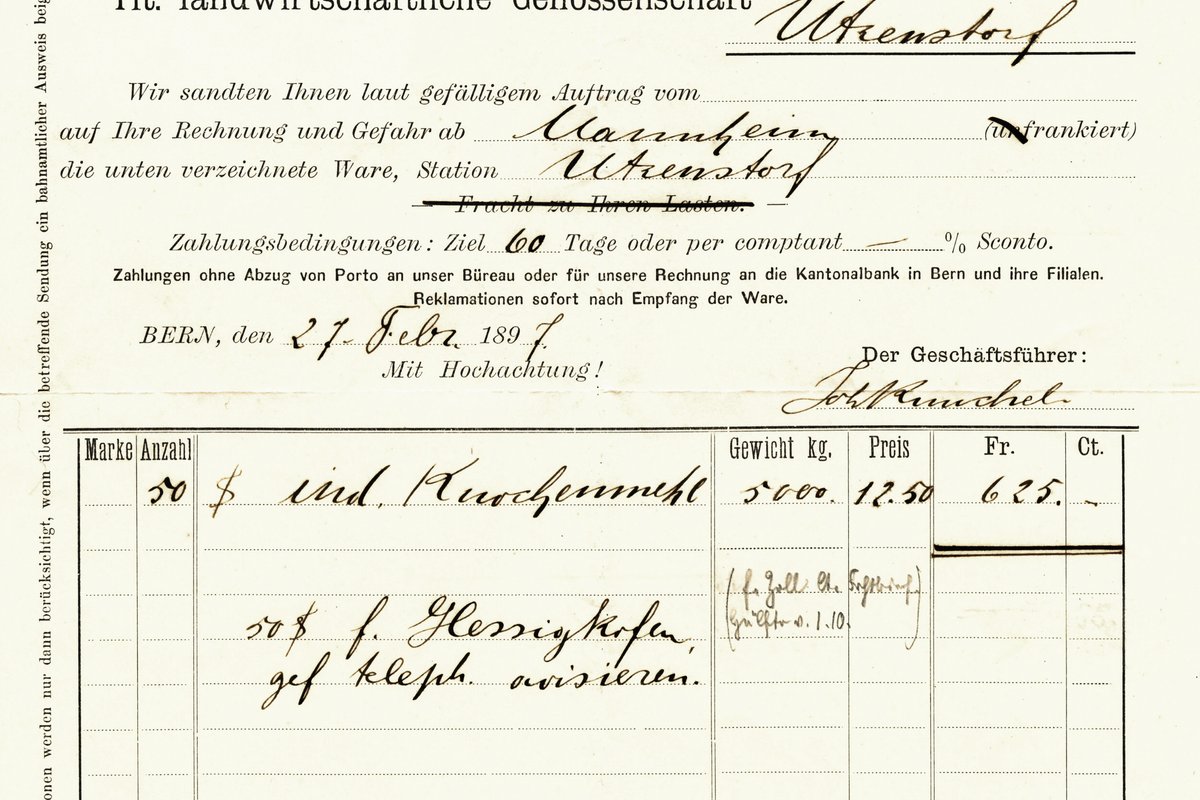 Tit. landwirtschaftliche Genossenschaft
Utzenstorf
Wir sandten Ihnen laut gefälligem Auftrag vom
auf Ihre Rechnung und Gefahr ab Mannheim (unfrankiert)
die unten verzeichnete Ware, Station Utzenstorf
Fracht zu Ihren Lasten.
Zahlungsbedingungen: Ziel 60 Tage oder per comptant — % Sconto.
Zahlungen ohne Abzug von Porto an unser Büreau oder für unsere Rechnung an die Kantonalbank in Bern und ihre Filialen.
Reklamationen sofort nach Empfang der Ware.
BERN, den 27. Febr. 1897.
Mit Hochachtung!
Der Geschäftsführer:
Joh Knuchel
Marke Anzahl Gewicht kg. Preis Fr. Ct.
50 ind. Knochenmehl 5000. 12.50 625. -
50 f. Hessigkofen,
gef teleph. avisieren.
v. 1.10.
onen werden nur dann berücksichtigt, wenn über die betreffende Sendung ein bahnamtlicher Ausweis beig